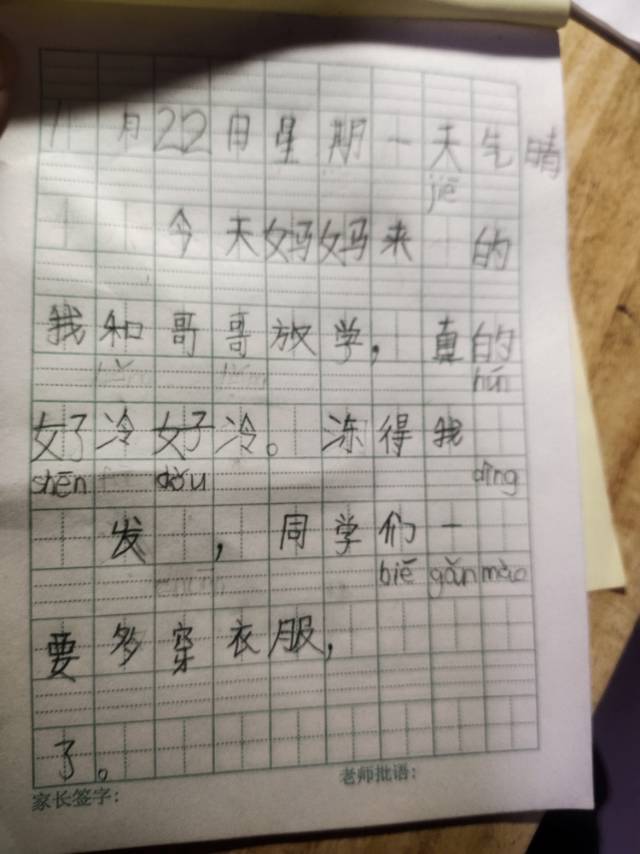 1月22日星期一天气晴
jiē
今天妈妈来 的
我和哥哥放学，真的
hún
好冷好冷。冻得我
shēn dǒu dīng
发 ，同学们一
bié gǎn mào
要多穿衣服，
了。
家长签字： 老师批语：